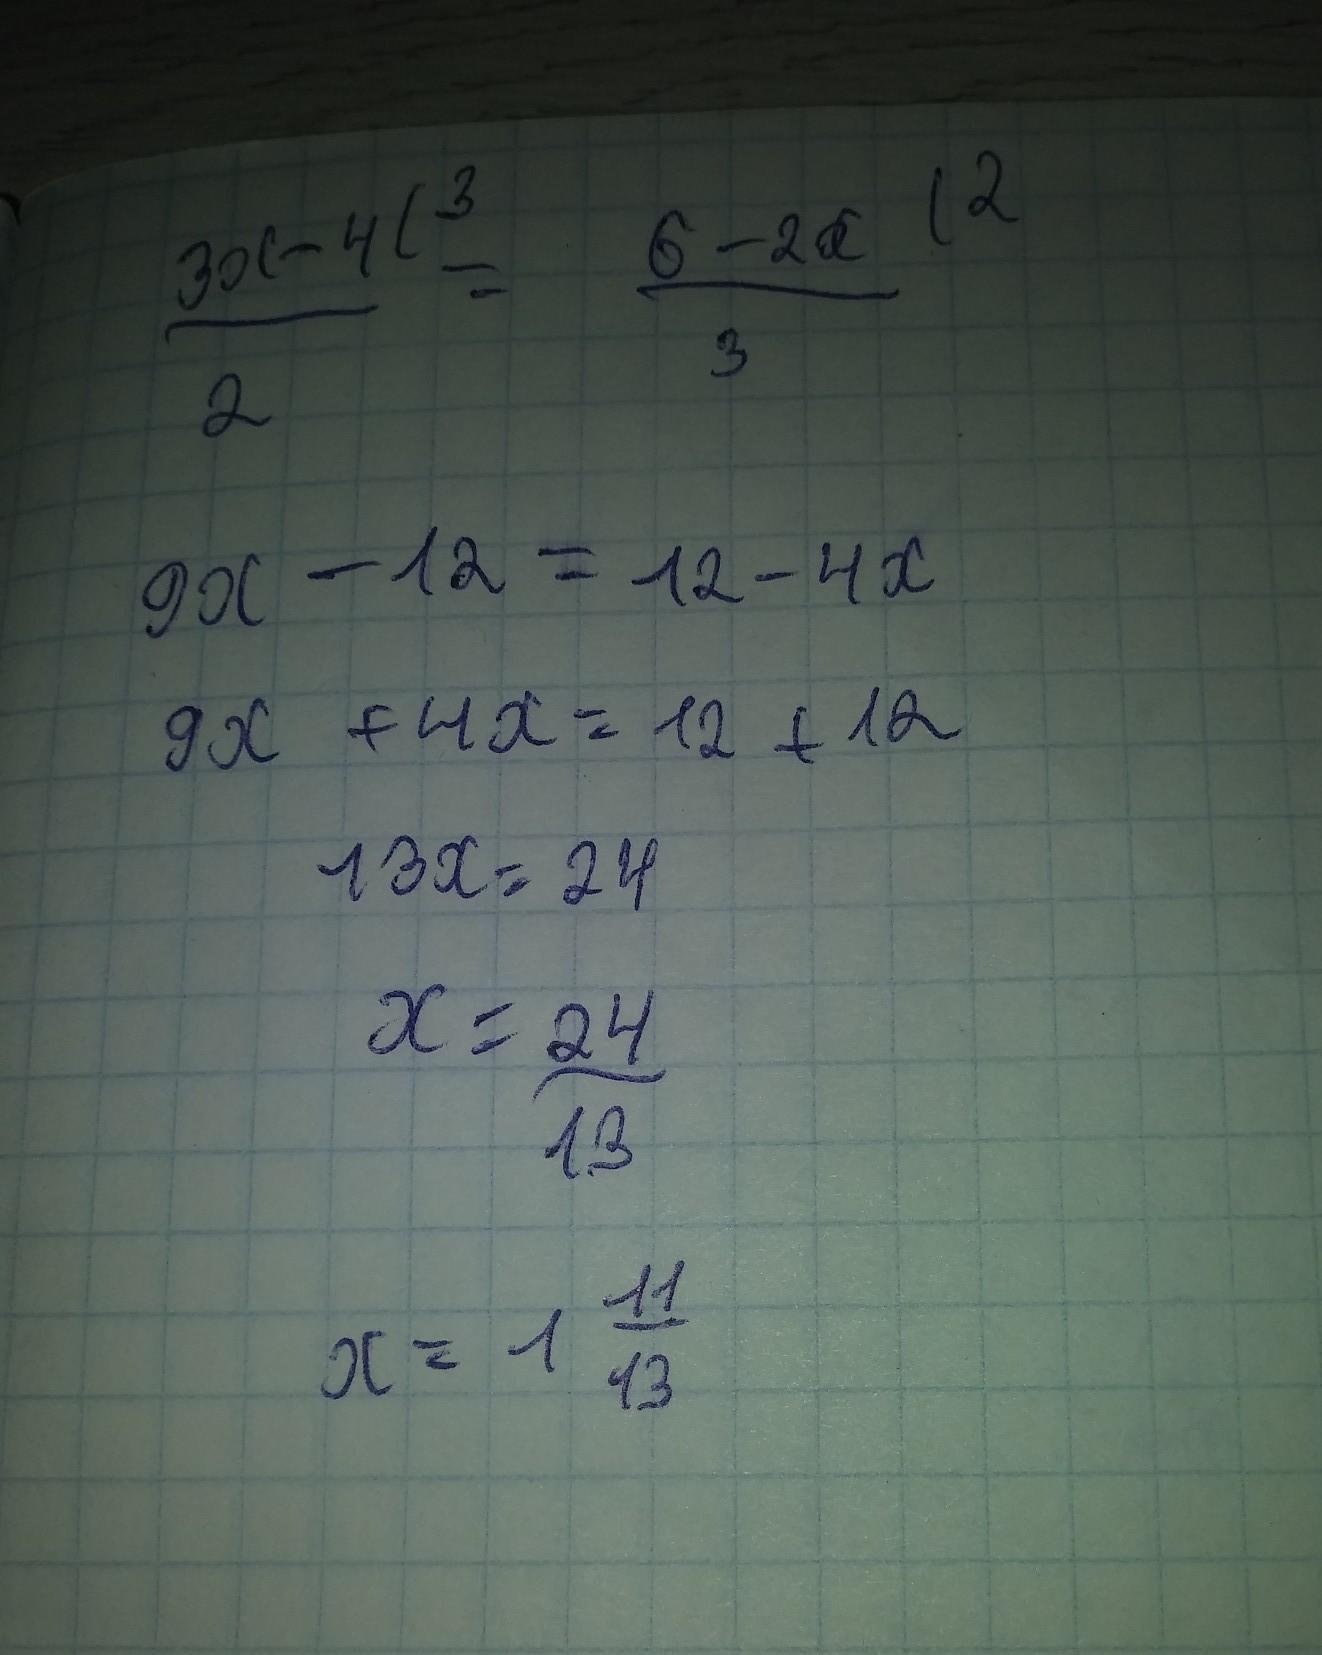 3x-4(3 = 6-2x (2
2 3
9x - 12 = 12 - 4x
9x + 4x = 12 + 12
13x = 24
x = 24
13
x = 1 11
13